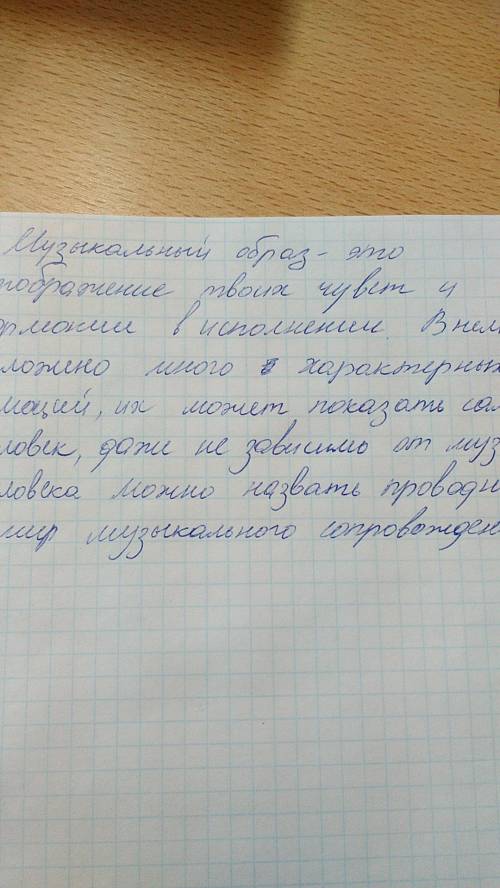 Музыкальный образ - это
тображение твоих чувст и
ормонии в исполнении. В нем
ложено много характерных
моций, их может показать сам
ловек, даже не зависимо от муз
ловека можно назвать проводн
мир музыкального сопровожден